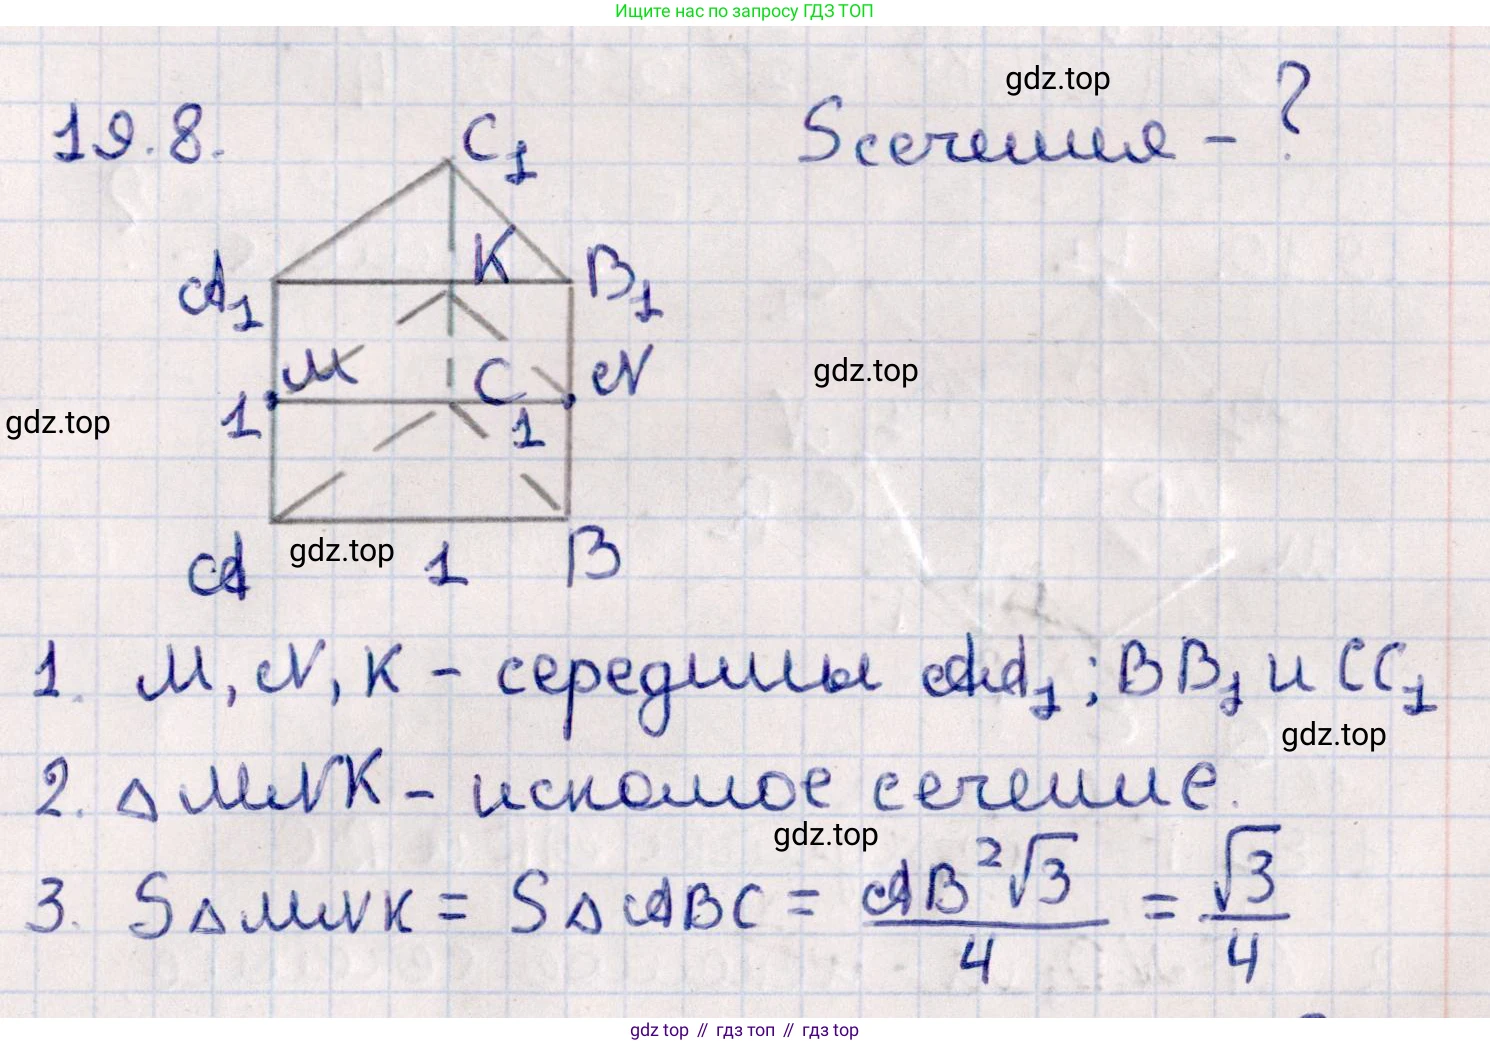 Ищите нас по запросу ГДЗ ТОП
gdz.top
19.8.
C₁
Sсечения - ?
K
A₁
B₁
M
C
N
gdz.top
1
1
gdz.top
A
gdz.top
1
B
1. M, N, K - середины AA₁; BB₁ и CC₁
gdz.top
2. △MNK - искомое сечение.
gdz.top
3. S△MNK = S△ABC = AB²√3/4 = √3/4
gdz top // гдз топ // гдз top